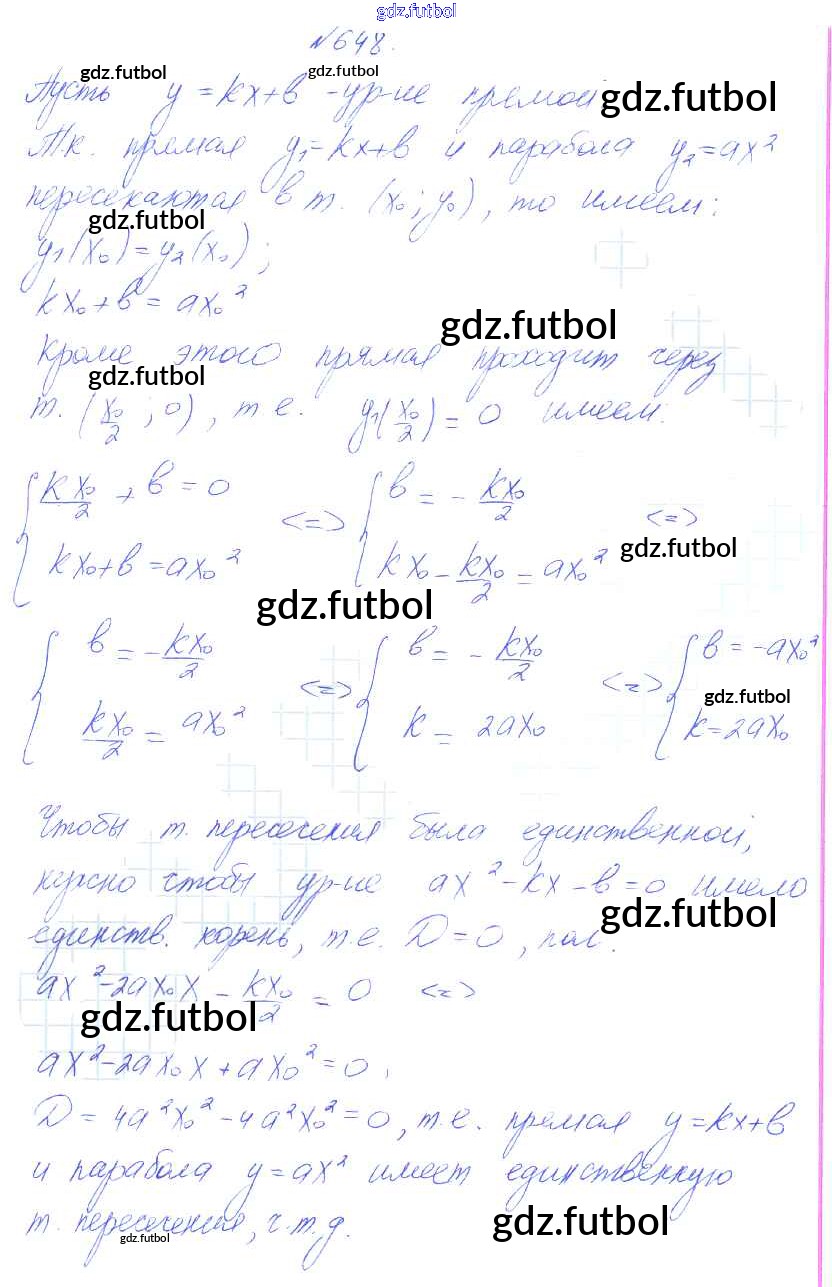 gdz.futbol
№648.
gdz.futbol gdz.futbol
Пусть y = kx+b - ур-ие прямой gdz.futbol
Т.к. прямая y₁=kx+b и парабола y₂=ax²
пересекаются в т. (x₀; y₀), то имеем:
gdz.futbol
y₁(x₀)=y₂(x₀);
kx₀+b = ax₀²
gdz.futbol
Кроме этого прямая проходит через
gdz.futbol
т. (x₀/2; 0), т.е. y₁(x₀/2) = 0 имеем:
{ kx₀/2 + b = 0 <=> { b = - kx₀/2 <=>
kx₀+b = ax₀² kx₀ - kx₀/2 = ax₀² gdz.futbol
gdz.futbol
{ b = - kx₀/2 <=> { b = - kx₀/2 <=> { b = -ax₀²
gdz.futbol
kx₀/2 = ax₀² k = 2ax₀ k=2ax₀
Чтобы т. пересечения была единственной,
нужно чтобы ур-ие ax²-kx-b=0 имело
gdz.futbol
единств. корень, т.е. D=0,
ax²-2ax₀x - kx₀/2 = 0 <=>
gdz.futbol
ax²-2ax₀x+ax₀²=0,
D = 4a²x₀²-4a²x₀²=0, т.е. прямая y=kx+b
и парабола y=ax² имеет единственную
т. пересечения, ч.т.д.
gdz.futbol gdz.futbol